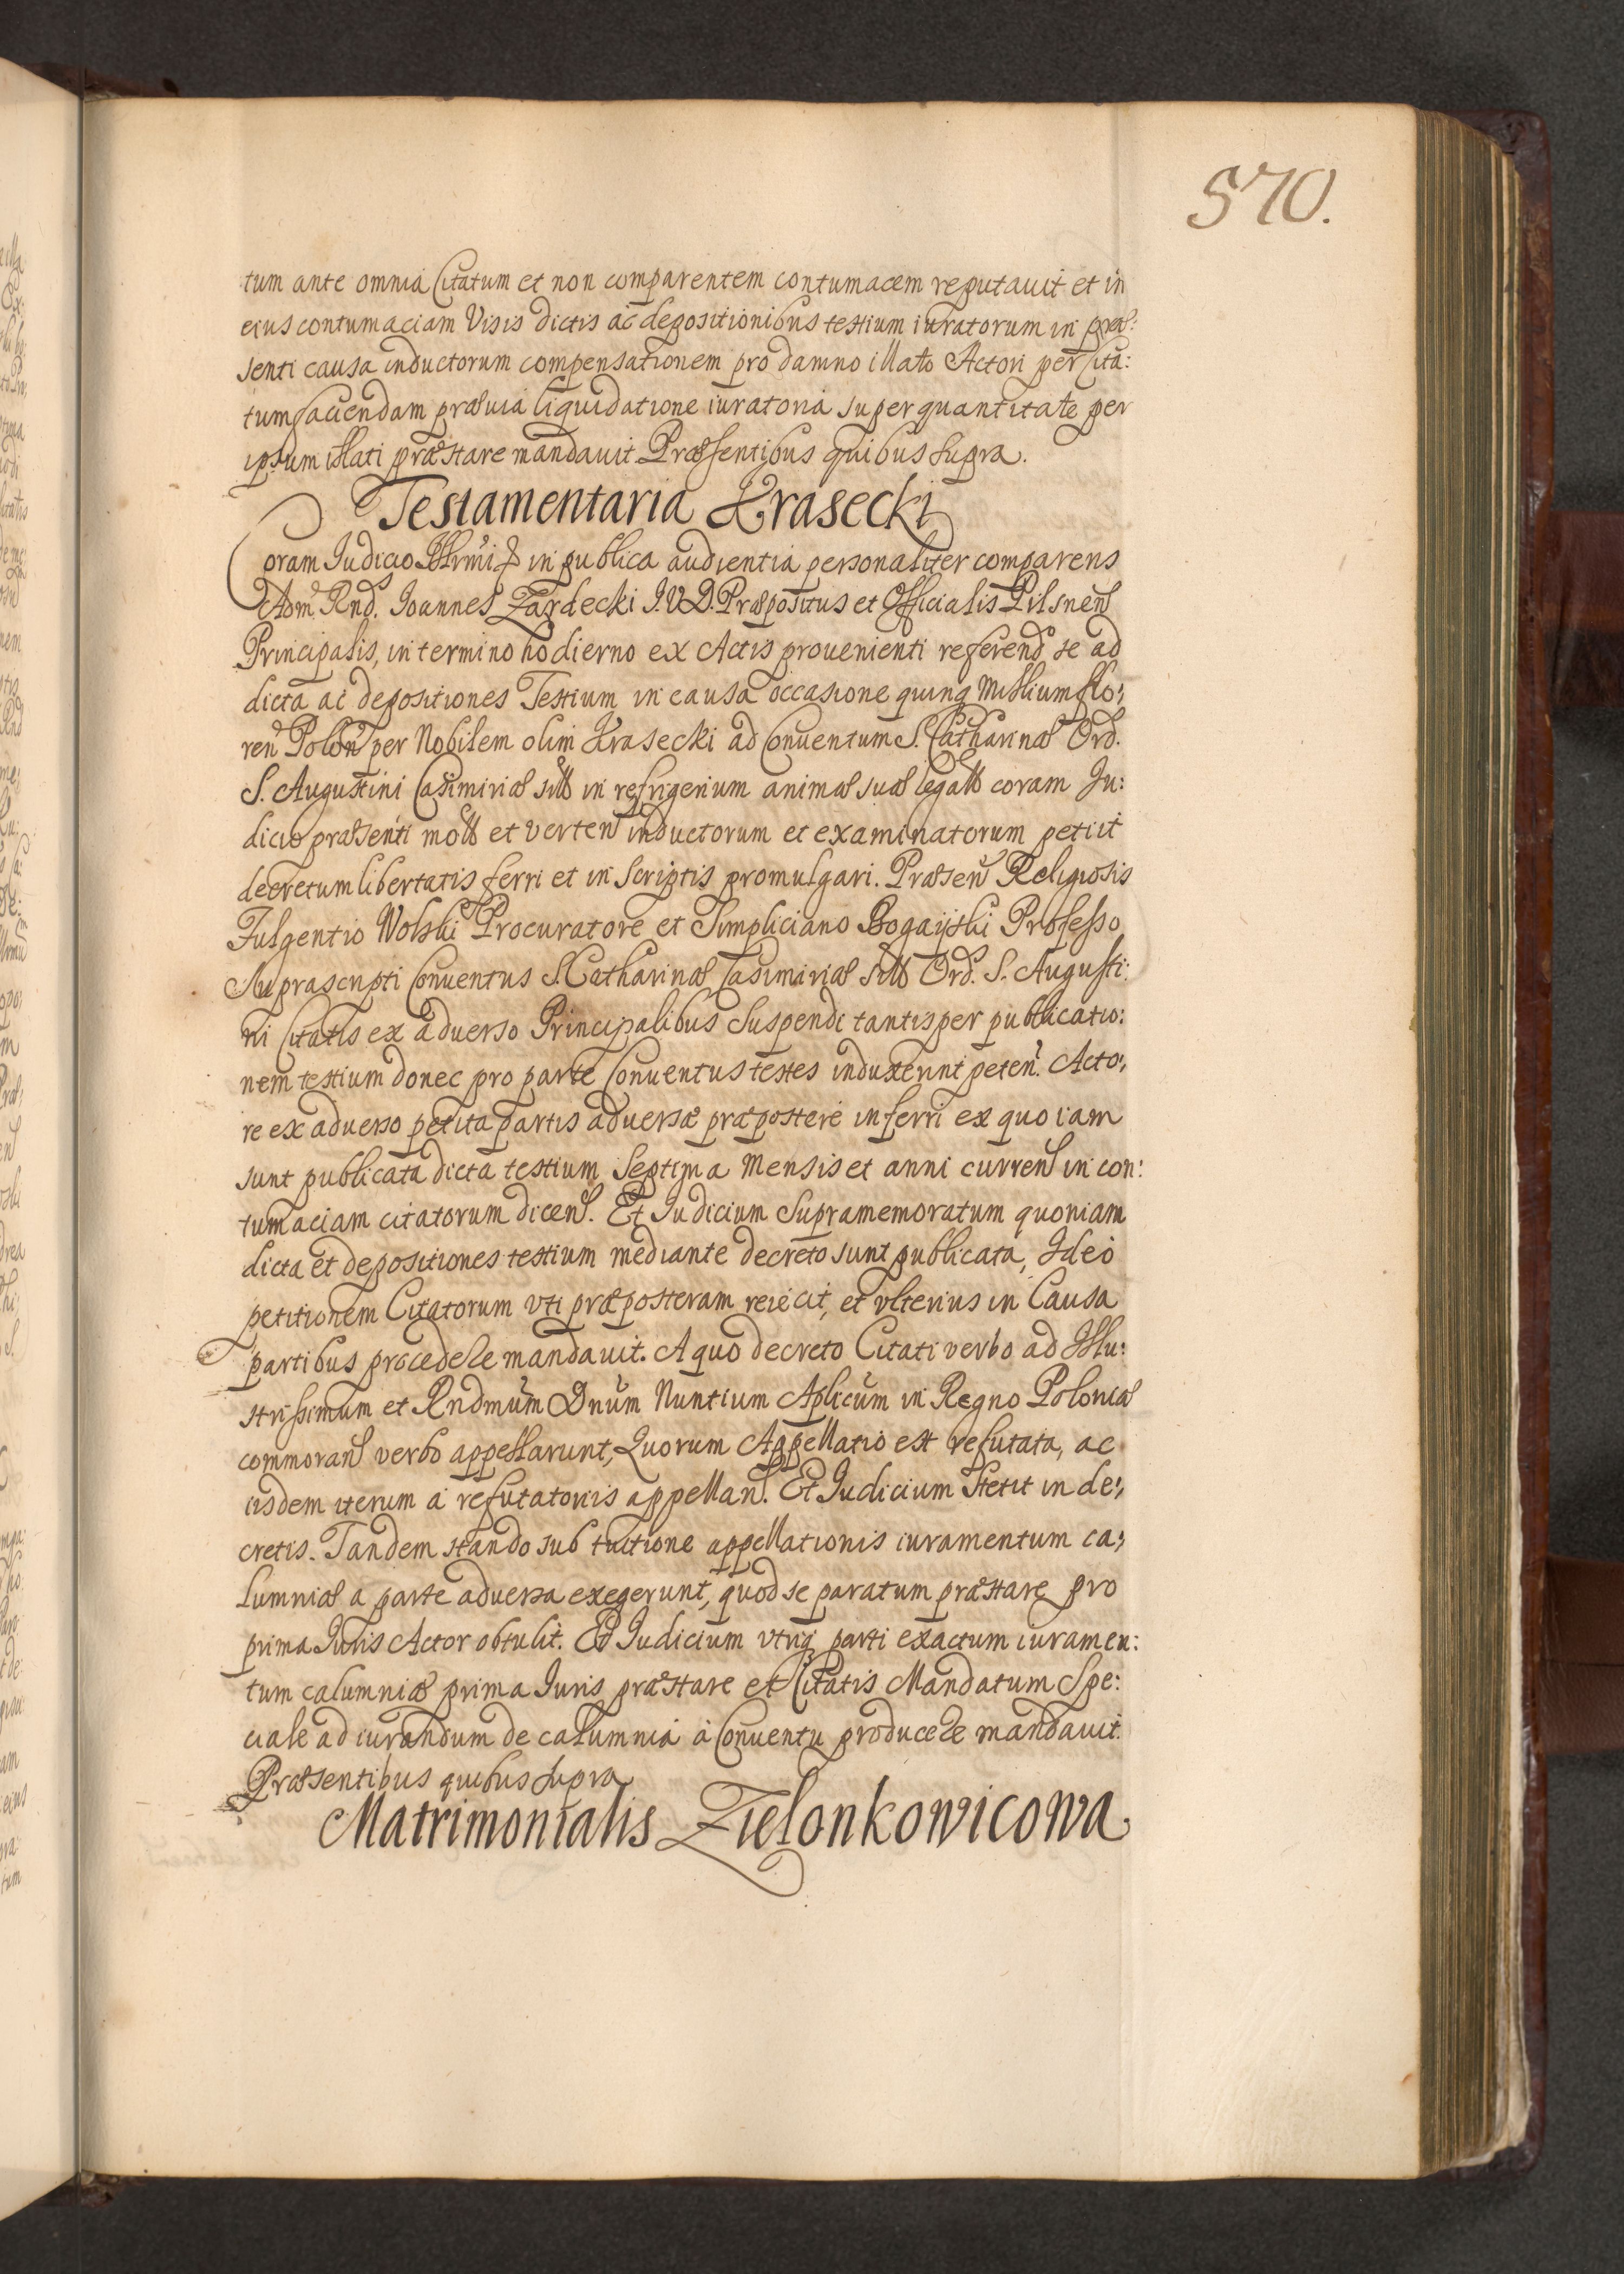 570.
tum ante omnia Citatum et non comparentem contumacem reputauit et in
eius contumaciam Visis dictis ac depositionibus testium iuratorum in præ:
senti causa inductorum compensationem pro damno illato Actori per Cita:
tum faciendam præuia liquidatione iuratoria super quantitate per
ipsum illati præstare mandauit Præsentibus quibus supra.
Testamentaria Krasecki
Coram Judicio in publica audientia personaliter comparens
Adm. Rnd. Joannes Zardecki J.V.D. Præpositus et Officialis Pilsneñ
Principalis, in termino hodierno ex Actis prouenienti referend se ad
dicta ac depositiones Testium in causa occasione quinq Millium flo:
ren Polon per Nobilem olim Krasecki ad Conuentum S. Catharinæ Ord.
S. Augustini Casimiriæ in refrigerium animæ suæ coram Ju:
dicio præsenti et verten inductorum et examinatorum petiit
decretum libertatis ferri et in Scriptis promulgari. Præsen Religiosis
Fulgentio Wolski Procuratore et Simpliciano Bogayski Professo
Suprascripti Conuentus S. Catharinæ Casimiriæ Ord. S. Augusti:
ni Citatis ex aduerso Principalibus Suspendi tantisper publicatio:
nem testium donec pro parte Conuentus testes induxerint peten. Acto:
re ex aduerso petita partis aduersæ præpostere inferri ex quo iam
sunt publicata dicta testium Septima Mensis et anni curren in con:
tumaciam citatorum dicen. Et Judicium Supramemoratum quoniam
dicta et depositiones testium mediante decreto sunt publicata, Ideo
petitionem Citatorum vti præposteram reiecit, et vlterius in Causa
partibus procedere mandauit. A quo decreto Citati verbo ad Illu:
strissimum et Rndmum Dnum Nuntium Aplicum in Regno Poloniæ
commoran verbo appellarunt, Quorum Appellatio est refutata, ac
iisdem iterum a refutatoriis appellan. Et Judicium Stetit in de:
cretis. Tandem stando sub tuitione appellationis iuramentum ca:
lumniæ a parte aduersa exegerunt, quod se paratum præstare pro
prima Juris Actor obtulit. Et Judicium vtriq parti exactum iuramen:
tum calumniæ prima Juris præstare et Citatis Mandatum Spe:
ciale ad iurandum de calumnia a Conuentu producere mandauit.
Præsentibus quibus supra
Matrimonialis Zielonkowicowa